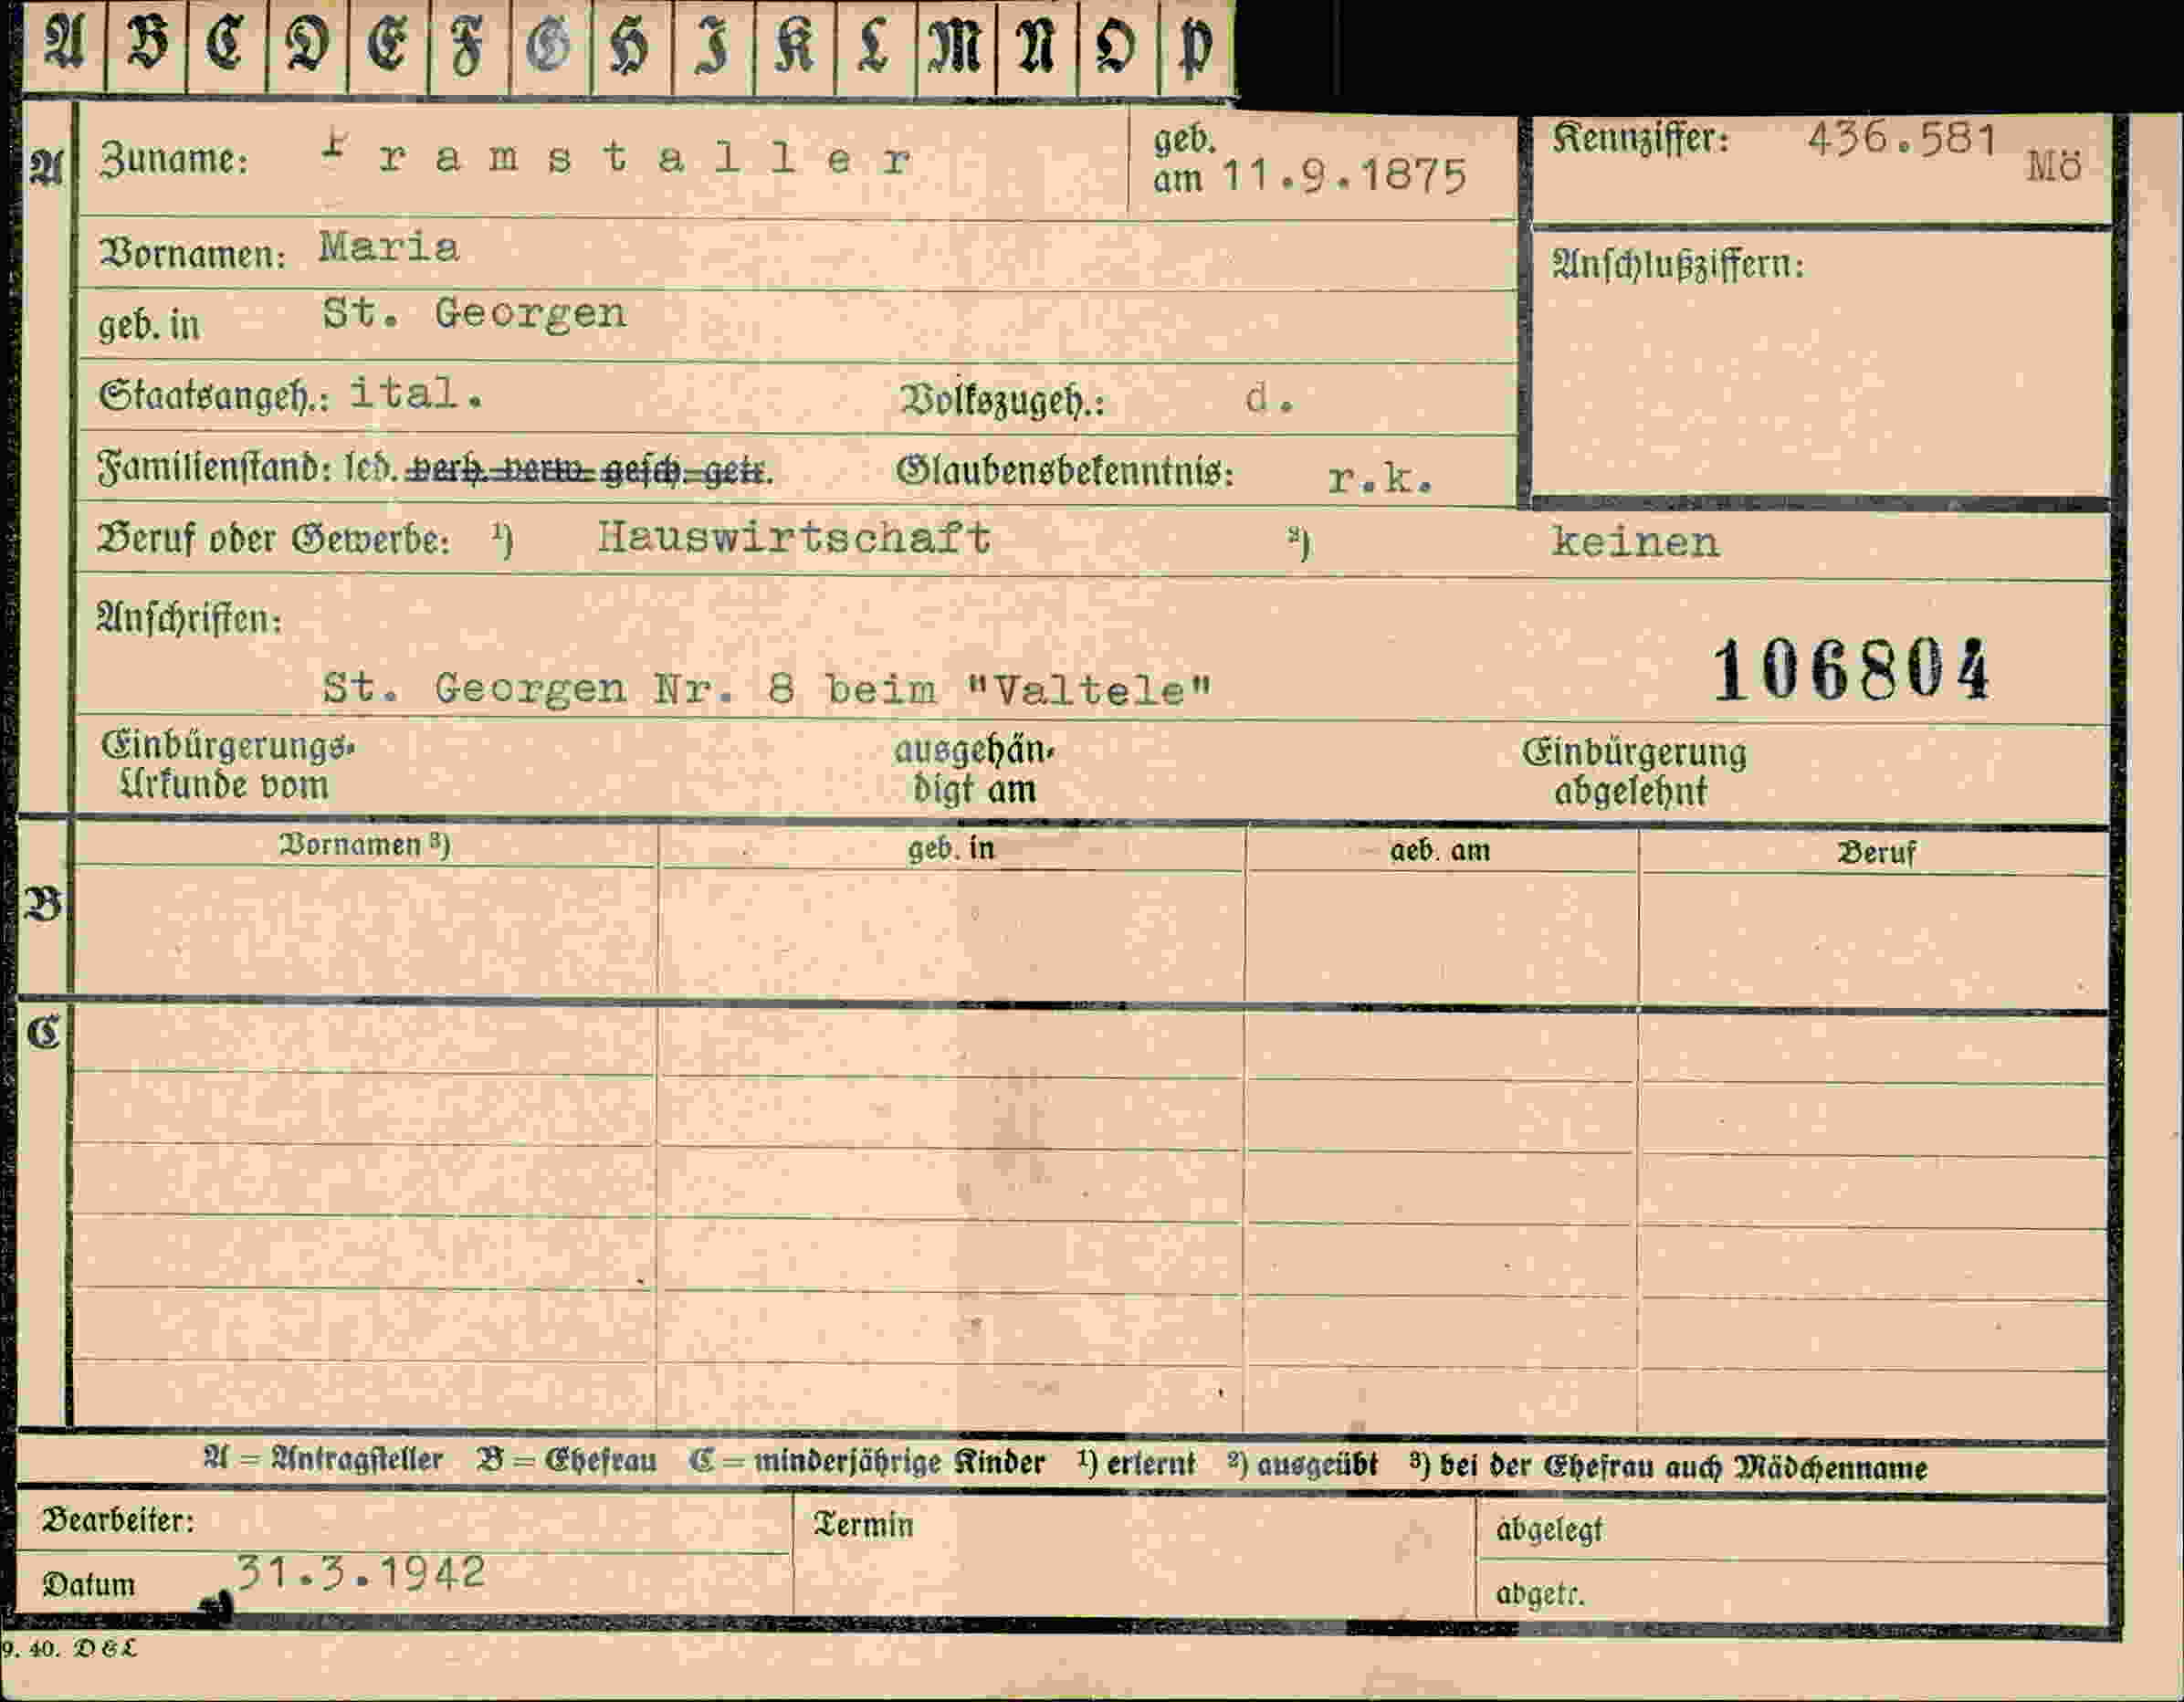 A B C D E F G H I K L M N O P
A Zuname: Framstaller geb. am 11.9.1875 Kennziffer: 436.581 Mö
Vornamen: Maria Anschlußziffern:
geb. in St. Georgen
Staatsangeh.: ital. Volkszugeh.: d.
Familienstand: led. verh. verw. gesch. getr. Glaubensbekenntnis: r.k.
Beruf oder Gewerbe: 1) Hauswirtschaft 2) keinen
Anschriften:
106804
St. Georgen Nr. 8 beim "Valtele"
Einbürgerungs- ausgehän- Einbürgerung
Urkunde vom digt am abgelehnt
Vornamen 3) geb. in geb. am Beruf
B
C
A = Antragsteller B = Ehefrau C = minderjährige Kinder 1) erlernt 2) ausgeübt 3) bei der Ehefrau auch Mädchenname
Bearbeiter: Termin abgelegt
Datum 31.3.1942 abgetr.
9. 40. D&L